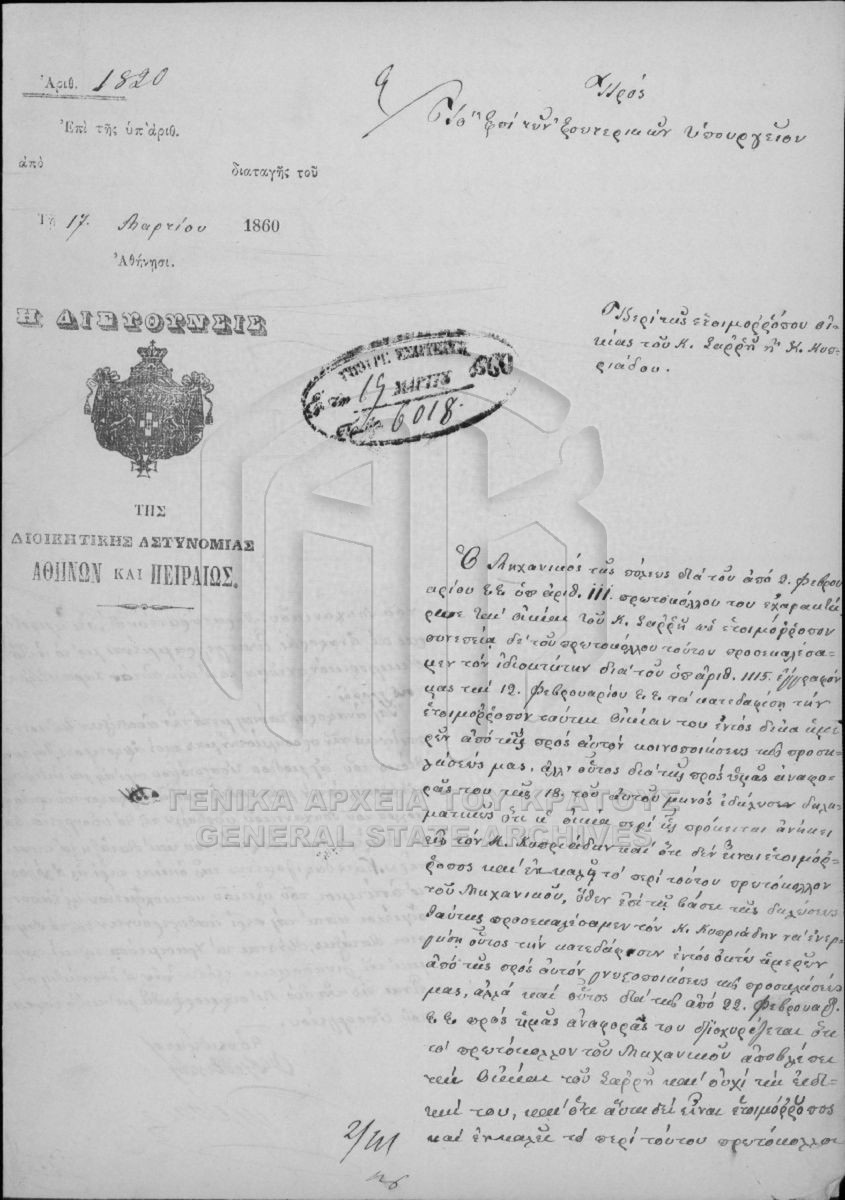 Ἀριθ. 1820
Ἐπὶ τῆς ὑπ' ἀριθ.
ἀπὸ διαταγῆς τοῦ
Τῇ 17. Μαρτίου 1860
Ἀθήνησι.
Η ΔΙΕΥΘΥΝΣΙΣ
ΤΗΣ
ΔΙΟΙΚΗΤΙΚΗΣ ΑΣΤΥΝΟΜΙΑΣ
ΑΘΗΝΩΝ ΚΑΙ ΠΕΙΡΑΙΩΣ.
Πρός
Τὸ ἐπὶ τῶν Ἐσωτερικῶν Ὑπουργεῖον
ΥΠΟΥΡΓ. ΕΣΩΤΕΡΙΚ.
19 ΜΑΡΤΙΟΥ 1860
6018.
Περὶ τῆς ἑτοιμορρόπου οἰ-
κίας τοῦ Κ. Σαρρῆ ἢ Κ. Κυπ-
ριάδου.
Ὁ Μηχανικός τῆς πόλεως διὰ τοῦ ἀπό 9. Φεβρου
αρίου ἔ.ἔ. ὑπ' ἀριθ. 111. πρωτοκόλλου του ἐχαρακτή
ρισε τὴν οἰκίαν τοῦ Κ. Σαρρῆ ὡς ἑτοιμόρροπον
συνεπείᾳ δὲ τοῦ πρωτοκόλλου τούτου προσεκαλέσα-
μεν τὸν ἰδιοκτήτην διὰ τοῦ ὑπ' ἀριθ. 1115. ἐγγράφου
μας τῆς 12. Φεβρουαρίου ἔ.ἔ. νὰ κατεδαφίσῃ τὴν
ἑτοιμόρροπον ταύτην οἰκίαν του ἐντός δέκα ἡμε
ρῶν ἀπὸ τῆς πρός αὐτόν κοινοποιήσεως τῆς προσκ-
λήσεώς μας, ἀλλ' οὗτος διὰ τῆς πρός ἡμᾶς ἀναφο-
ρᾶς του τῆς 18. τοῦ αὐτοῦ μηνός ἐδήλωσεν
ὅτι ἡ οἰκία περὶ ἧς πρόκειται ἀνήκει
εἰς τὸν Κ. Κυπριάδην καὶ ὅτι δέν εἶναι ἑτοιμόρ-
ροπος καὶ ἐκκαλεῖ τὸ περὶ τούτου πρωτόκολλον
τοῦ Μηχανικοῦ, ὅθεν ἐπὶ τῇ βάσει τῆς δηλώσεως
ταύτης προσεκαλέσαμεν τὸν Κ. Κυπριάδην νὰ ἐνερ-
γήσῃ οὗτος τὴν κατεδάφισιν ἐντός ὀκτώ ἡμερῶν
ἀπὸ τῆς πρός αὐτόν γνωστοποιήσεως τῆς προσκλήσεώς
μας, ἀλλὰ καὶ οὗτος διὰ τῆς ἀπό 22. Φεβρουαρ.
ἔ.ἔ. πρός ἡμᾶς ἀναφορᾶς του διισχυρίζεται ὅτι
τὸ πρωτόκολλον τοῦ Μηχανικοῦ ἀποβλέπει
τὴν οἰκίαν τοῦ Σαρρῆ καὶ οὐχὶ τὴν ἐδι-
κήν του, καὶ ὅτι αὕτη δέν εἶναι ἑτοιμόρροπος
καὶ ἐκκαλεῖ τὸ περὶ τούτου πρωτόκολλον
ΓΕΝΙΚΑ ΑΡΧΕΙΑ ΤΟΥ ΚΡΑΤΟΥΣ
GENERAL STATE ARCHIVES